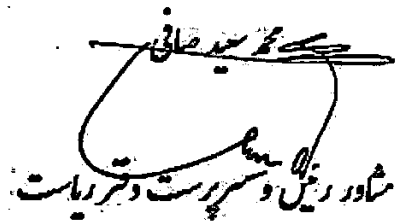 محمد سعید صافی
مشاور رئیس و سرپرست دفتر ریاست